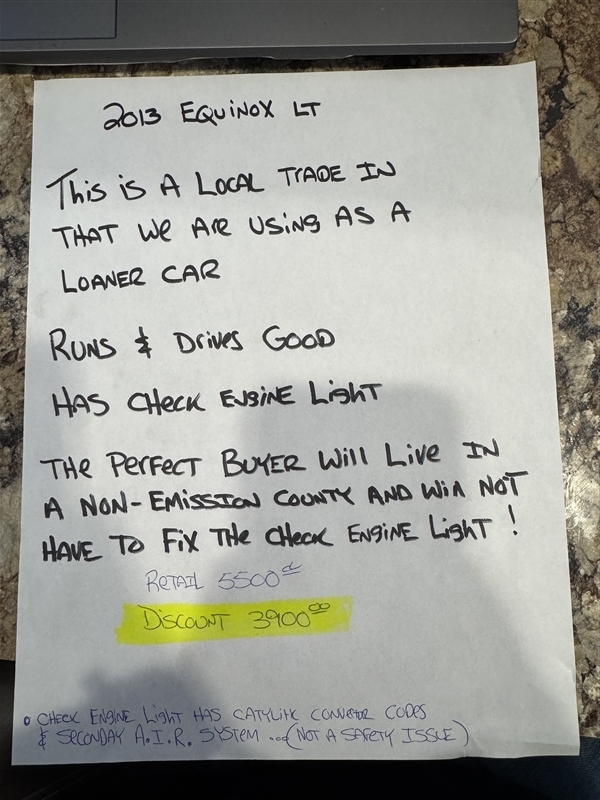 2013 EQUINOX LT
THIS IS A LOCAL TRADE IN
THAT WE ARE USING AS A
LOANER CAR
RUNS & DRIVES GOOD
HAS CHECK ENGINE LIGHT
THE PERFECT BUYER WILL LIVE IN
A NON-EMISSION COUNTY AND WILL NOT
HAVE TO FIX THE CHECK ENGINE LIGHT!
RETAIL 5500
DISCOUNT 3900.00
• CHECK ENGINE LIGHT HAS CATYLITK CONVERTOR CODES
& SECONDAY A.I.R. SYSTEM ... (NOT A SAFETY ISSUE)